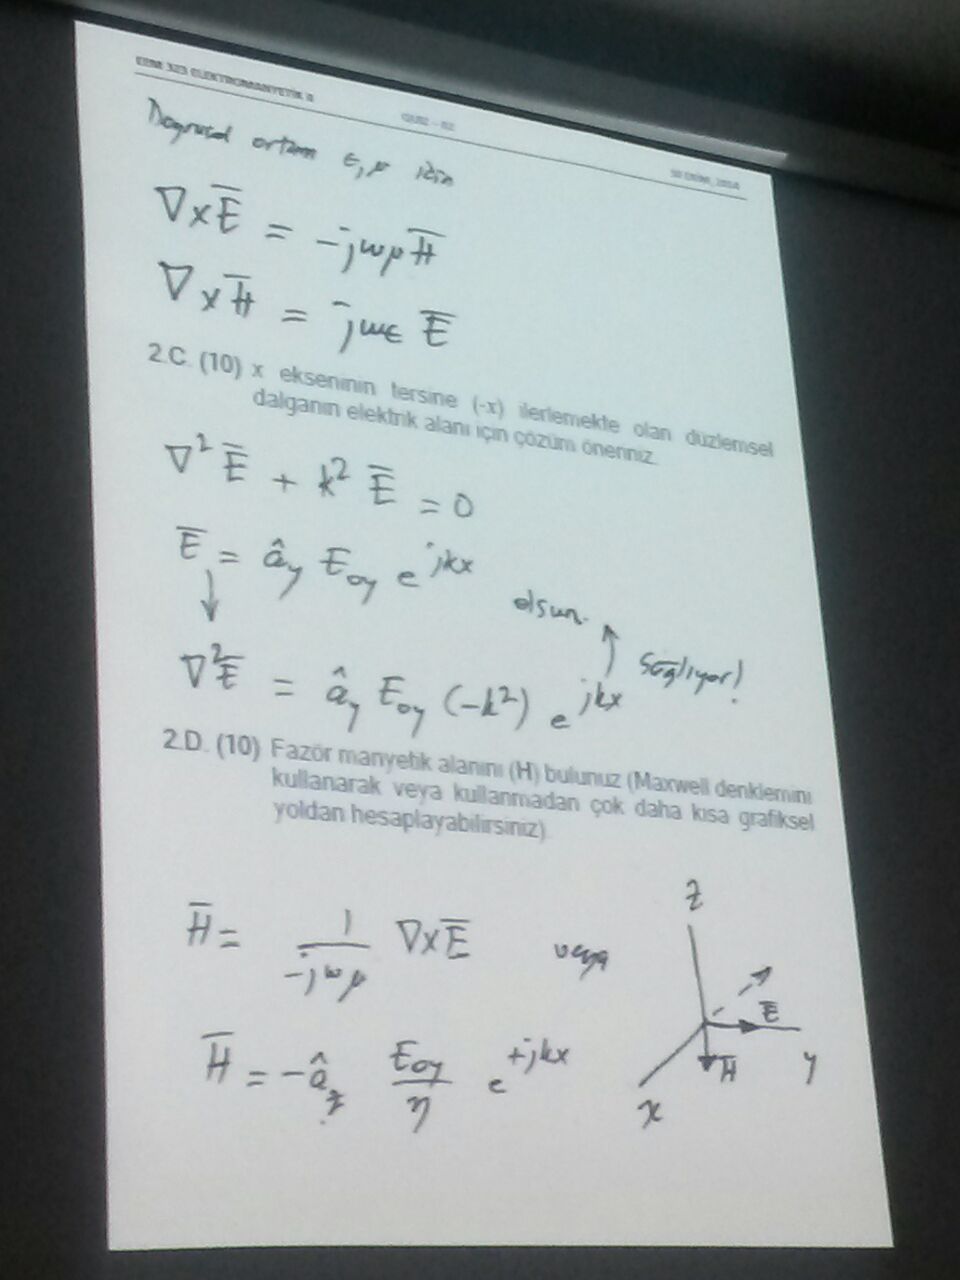 EEM 323 ELEKTROMANYETİK II QUIZ - 02 30 EKİM, 2014
Doğrusal ortam ε, μ için
∇×E̅ = -jωμH̅
∇×H̅ = jωϵ E̅
2.C. (10) x ekseninin tersine (-x) ilerlemekte olan düzlemsel
dalganın elektrik alanı için çözüm öneriniz.
∇² E̅ + k² E̅ = 0
E̅ = â_y E_oy e^{jkx} olsun.
∇²E̅ = â_y E_oy (-k²) e^{jkx} Sağlıyor!
2.D. (10) Fazör manyetik alanını (H) bulunuz (Maxwell denklemini
kullanarak veya kullanmadan çok daha kısa grafiksel
yoldan hesaplayabilirsiniz).
H̅ = 1/(-jωμ) ∇×E̅ veya
H̅ = -â_z E_oy/η e^{+jkx}
z
E̅
H̅
y
x